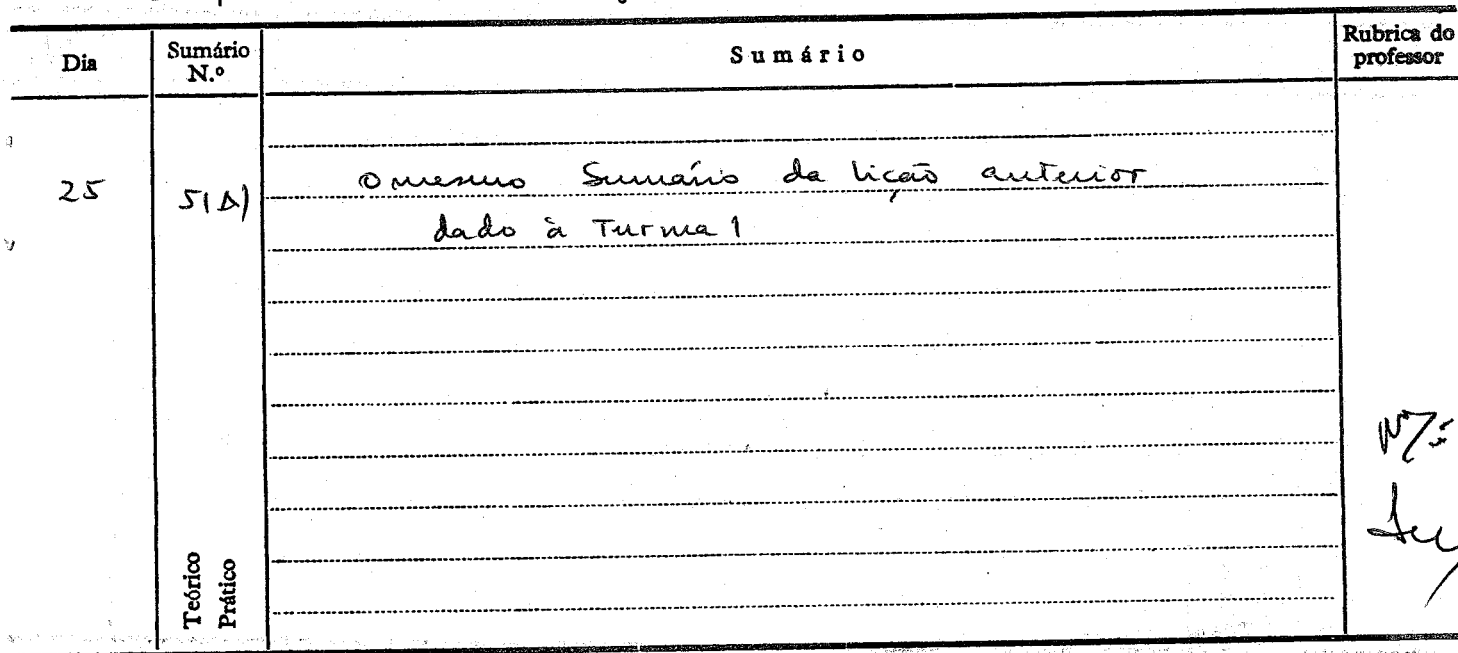 Dia Sumário N.º Sumário Rubrica do professor
25 5(A) O mesmo Sumário da lição anterior
dado à Turma 1
Teórico
Prático